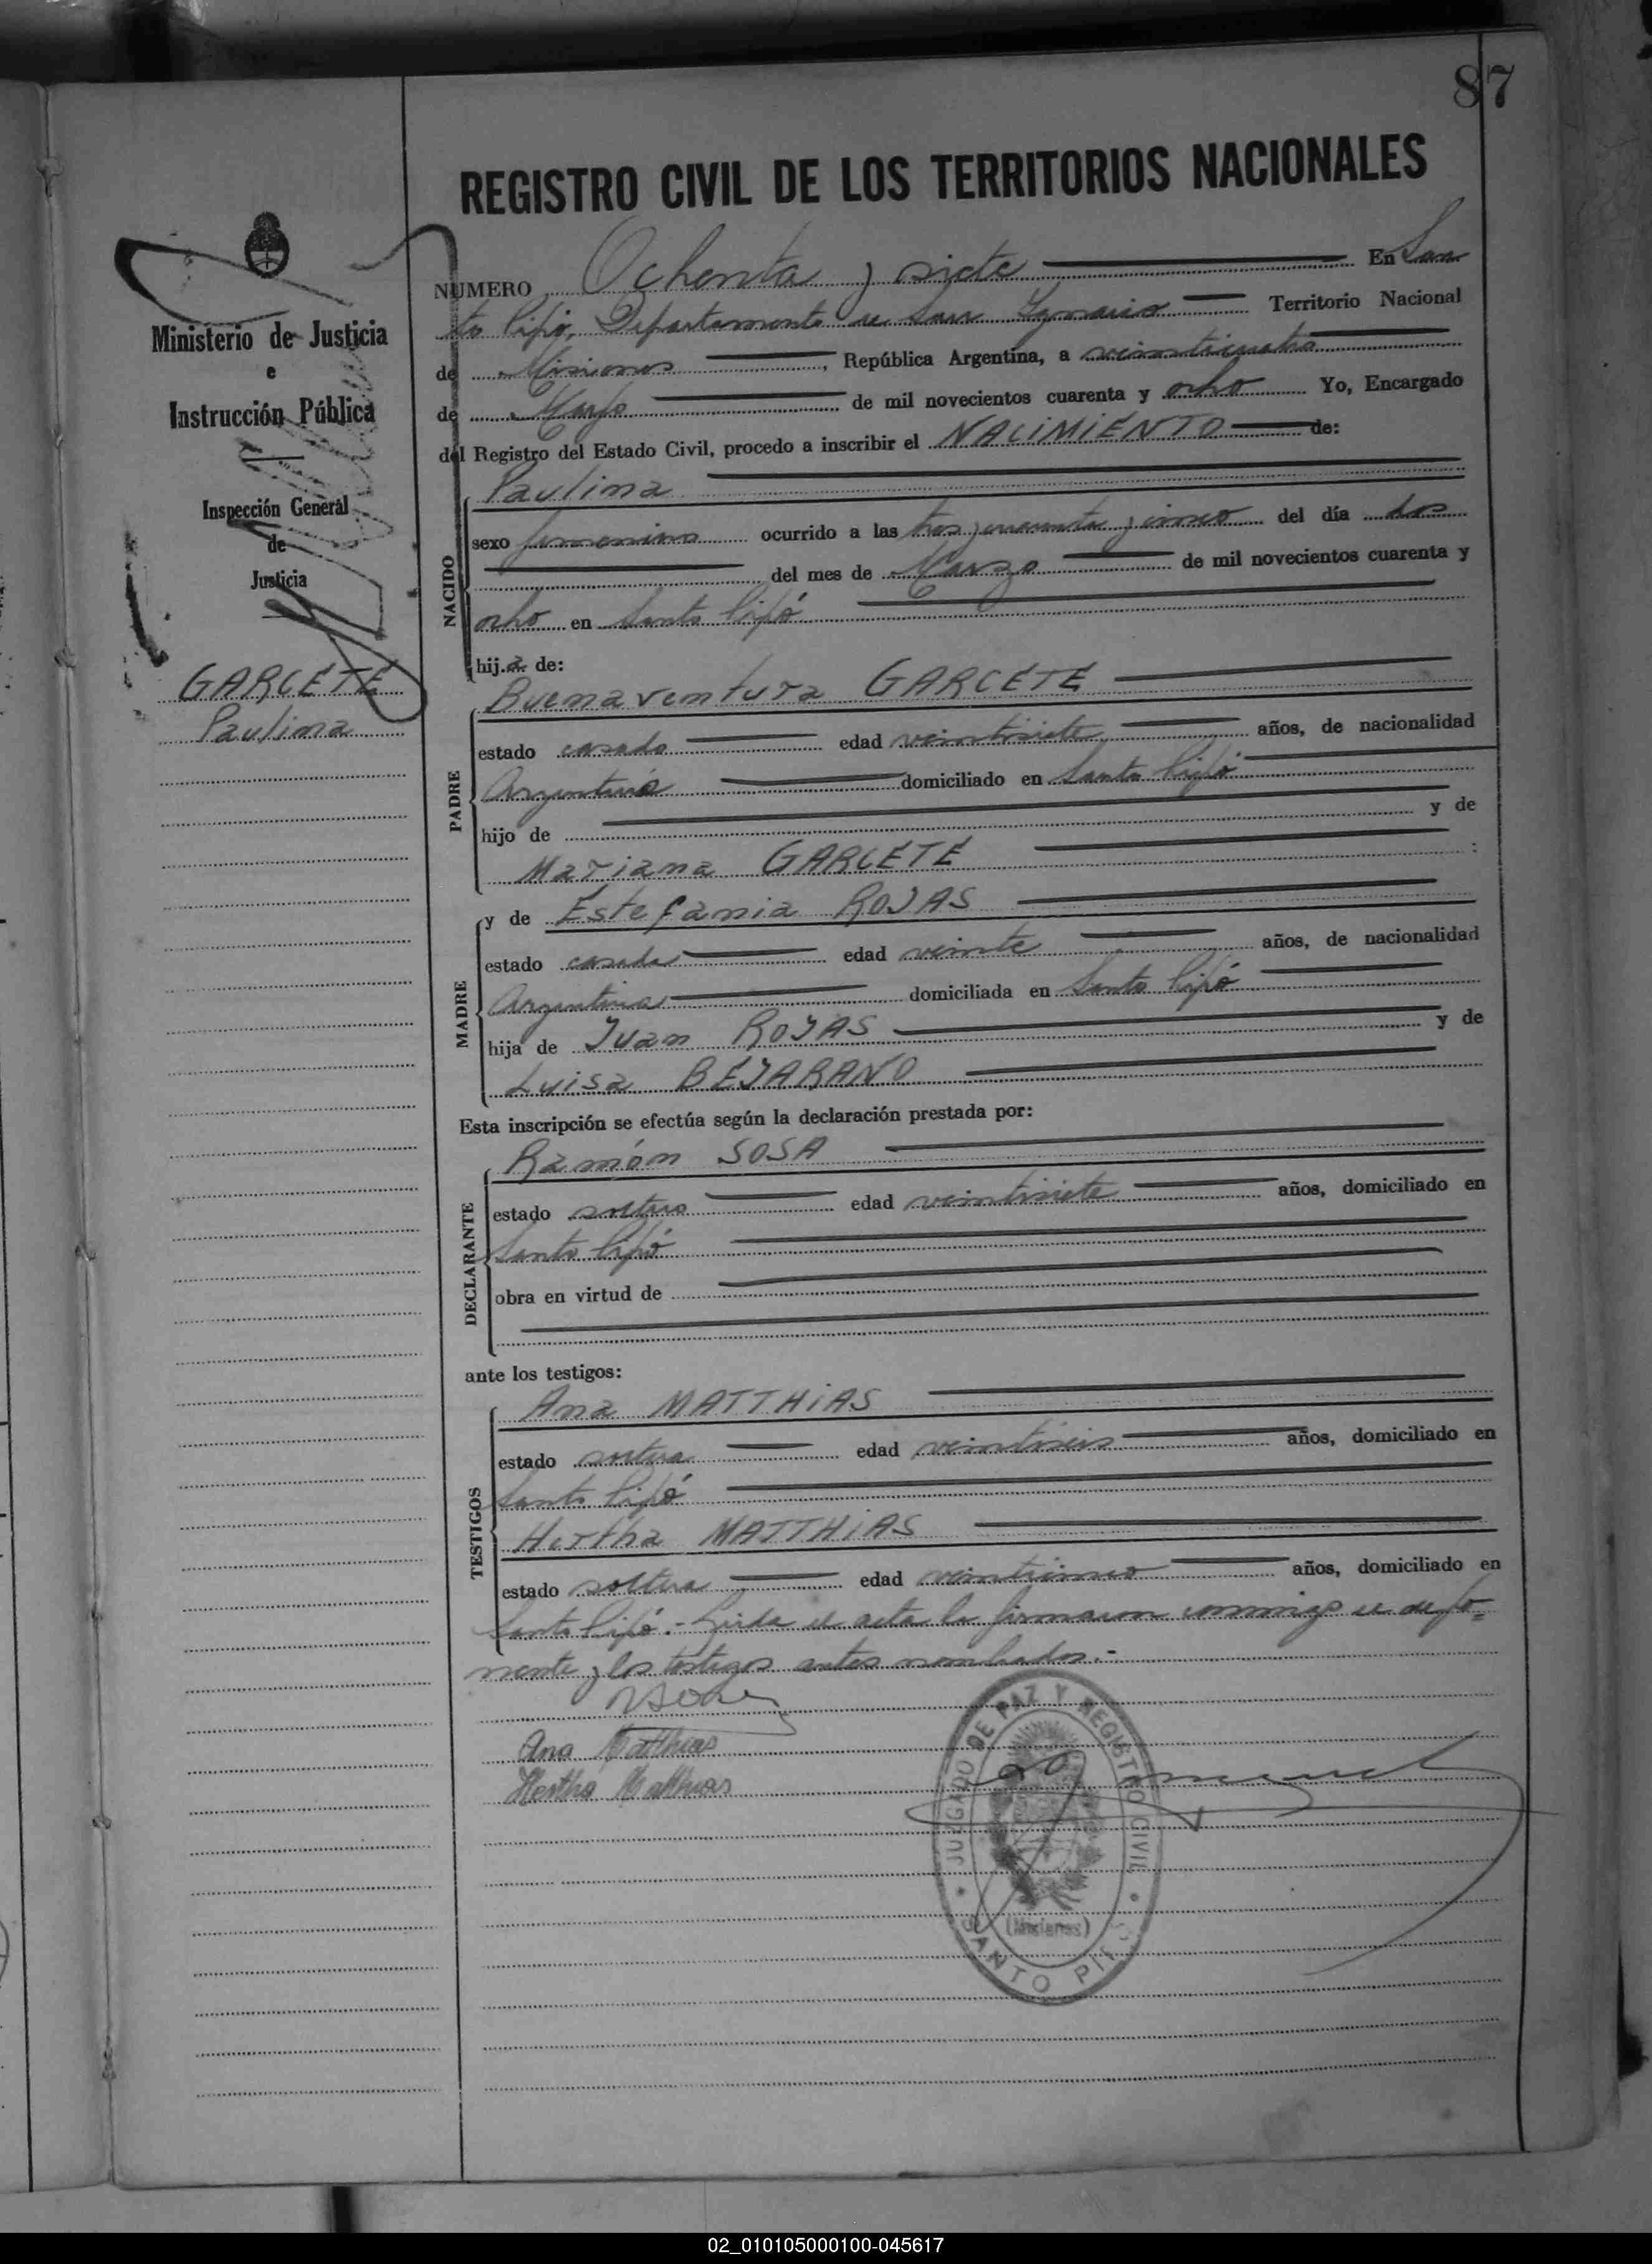 87
REGISTRO CIVIL DE LOS TERRITORIOS NACIONALES
Ministerio de Justicia
e
Instrucción Pública
Inspección General
de
Justicia
GARCETE
Paulina
NÚMERO Ochenta y siete En San
to Pipó, Departamento de San Ygnacio Territorio Nacional
de Misiones, República Argentina, a veinticuatro
de Marzo de mil novecientos cuarenta y ocho Yo, Encargado
del Registro del Estado Civil, procedo a inscribir el NACIMIENTO de:
NACIDO
Paulina
sexo femenino ocurrido a las tres y cuarenta y cinco del día dos
del mes de Marzo de mil novecientos cuarenta y
ocho en Santo Pipó
hij.a de:
PADRE
Buenaventura GARCETE
estado casado edad veintisiete años, de nacionalidad
Argentina domiciliado en Santo Pipó
hijo de y de
Mariana GARCETE
MADRE
y de Estefania ROJAS
estado casada edad veinte años, de nacionalidad
Argentina domiciliada en Santo Pipó
hija de Juan ROJAS y de
Luisa BEJARANO
Esta inscripción se efectúa según la declaración prestada por:
DECLARANTE
Ramón SOSA
estado soltero edad veintisiete años, domiciliado en
Santo Pipó
obra en virtud de
ante los testigos:
TESTIGOS
Ana MATTHiAS
estado soltera edad veintiseis años, domiciliado en
Santo Pipó
Hertha MATTHiAS
estado soltera edad veinticinco años, domiciliado en
Santo Pipó.- Leida el acta la firmaron conmigo el depo=
nente y los testigos antes nombrados.-
Ana Matthias
Hertha Matthias
JUZGADO DE PAZ Y REGISTRO CIVIL
(Misiones)
SANTO PIPO
02_010105000100-045617